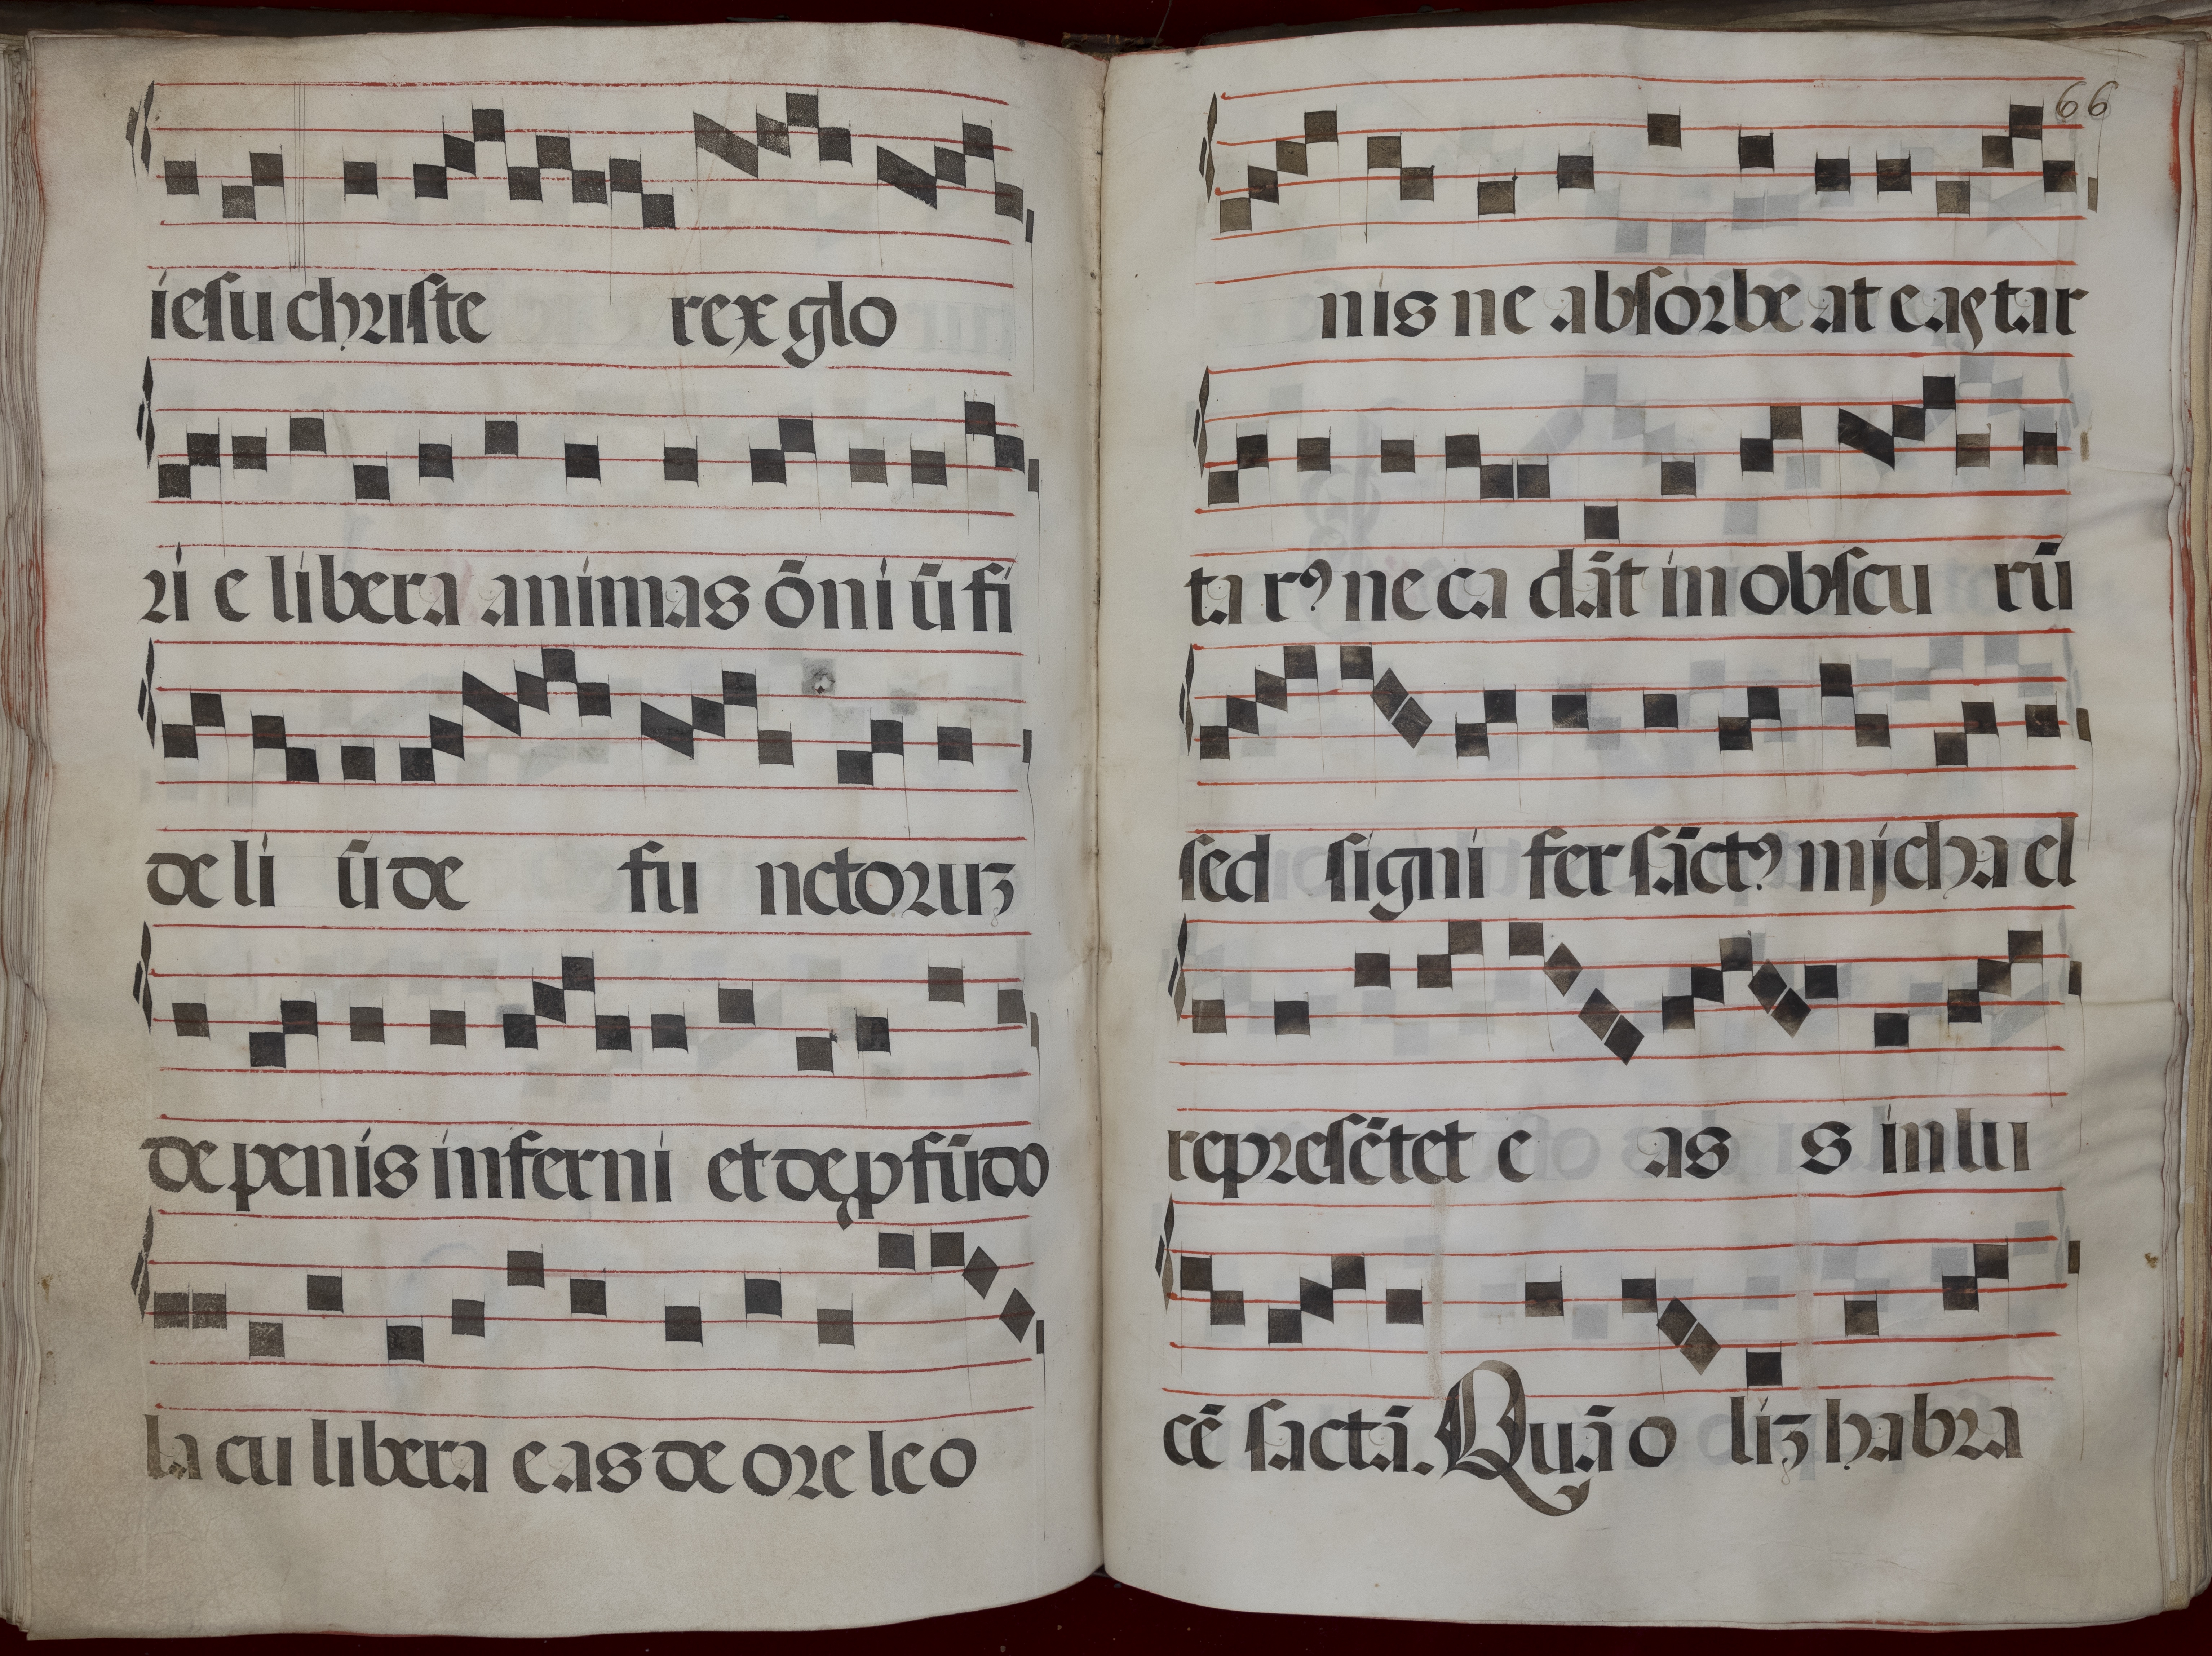 iesu christe rex glo
ri e libera animas õni ũ fi
de li ũ de fu nctoruȝ
de penis inferni et de ꝓfũdo
la cu libera e as de ore leo
66
nis ne absorbe at e as tar
ta rꝰ ne ca dãt in obscu rũ
sed signi fer sãctꝰ mjcha el
represẽtet e as s in lu
cẽ sactã. Quã o liȝ habra